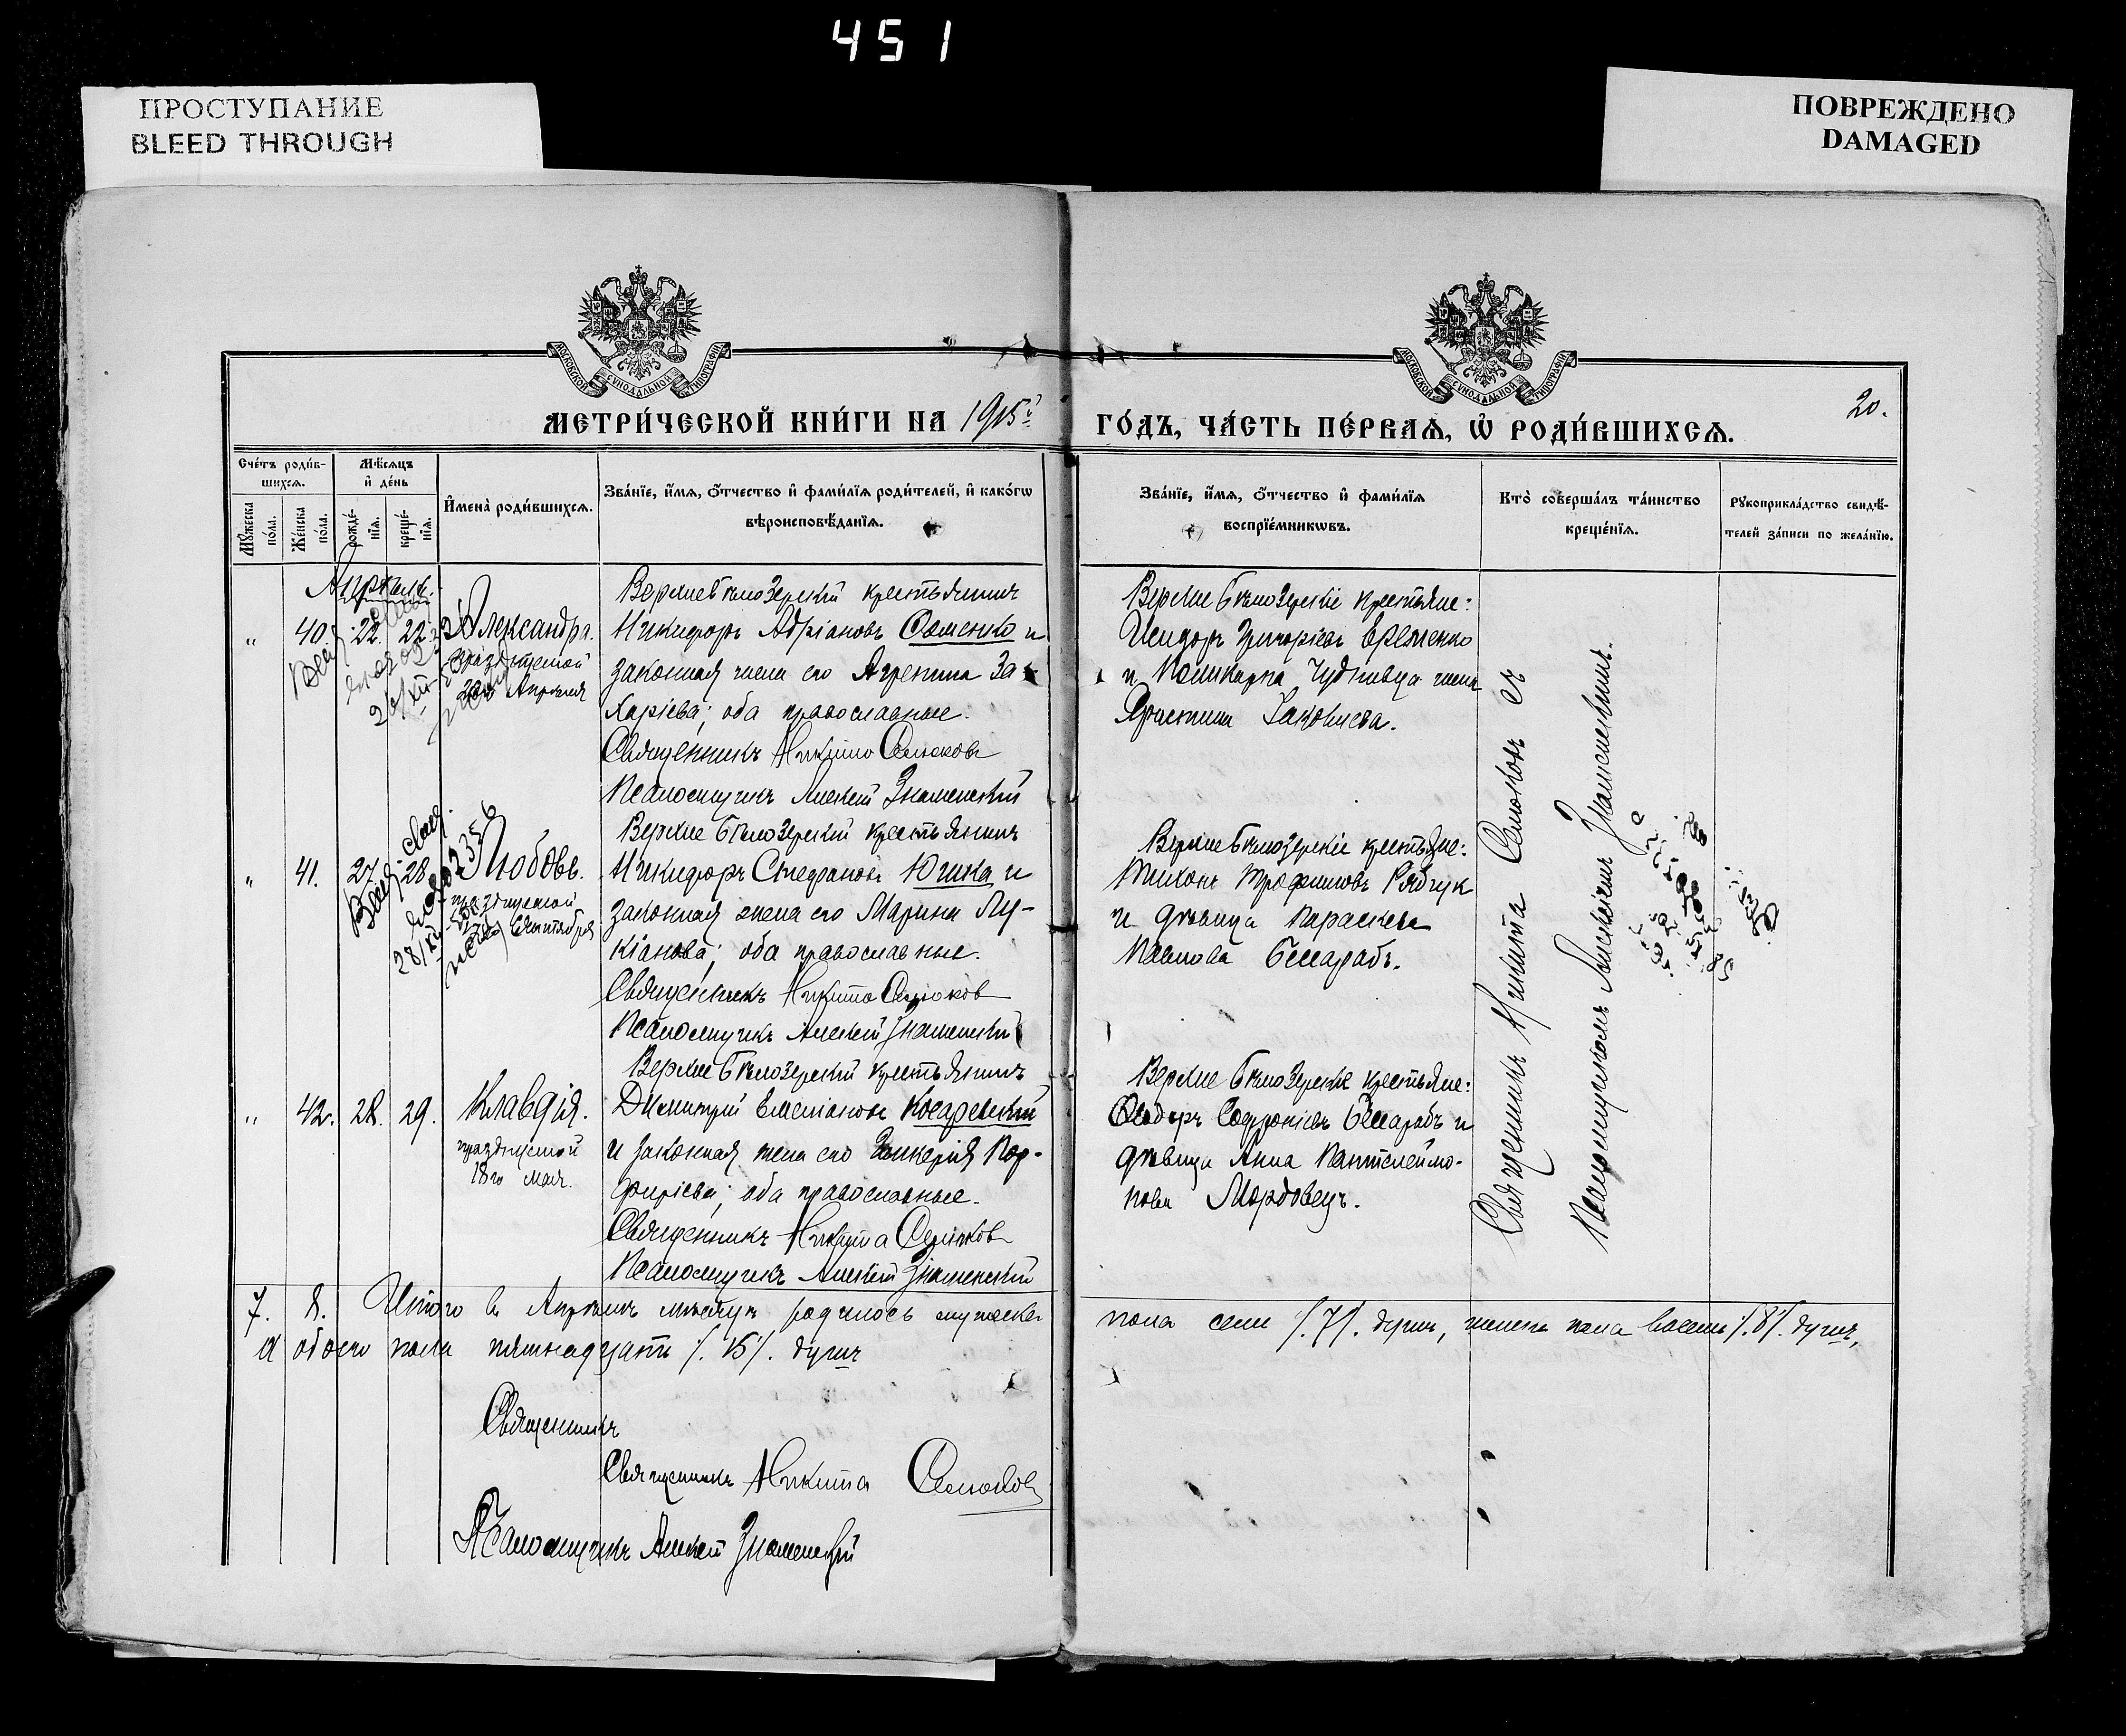 451
ПРОСТУПАНИЕ
BLEED THROUGH
ПОВРЕЖДЕНО
DAMAGED
МОСКОВСКОЙ СѴНОДАЛЬНОЙ ТИПОГРАФІИ
МОСКОВСКОЙ СѴНОДАЛЬНОЙ ТИПОГРАФІИ
МЕТРИ́ЧЕСКОЙ КНИ́ГИ НА 1915й
ГО́ДЪ, ЧА́СТЬ ПЕ́РВАѦ, Ѽ РОДИ́ВШИХСѦ.
20.
Сче́тъ роди́в-
шихсѧ.
Мѣ́сѧцъ
и де́нь
Мꙋ́жеска
по́ла.
Же́нска
по́ла.
рожде́-
нїѧ.
креще́-
нїѧ.
И҆мена̀ роди́вшихсѧ.
Зва́нїе, и҆́мѧ, ѻ҆́тчество и҆ фами́лїѧ роди́телей, и҆ како́гѡ
вѣроисповѣ́данїѧ.
Зва́нїе, и҆́мѧ, ѻ҆́тчество и҆ фами́лїѧ
воспрїе́мникѡвъ.
Кто̀ соверша́лъ та́инство
креще́нїѧ.
Рꙋкоприкла́дство свидѣ́-
телей за́писи по жела́нїю.
Апрѣль.
„ 40. 22. 22. Александра.
празднуемой
Апрѣля
Верхнебѣлозерскій крестьянинъ
Никифоръ Адріановъ Савенко и
законная жена его Агрепина За-
харіева; оба православные.
Священникъ Никита Селюковъ
Псаломщикъ Алексей Знаменскій
Верхнебѣлозерскіе крестьяне:
Исидоръ Григоріевъ Еременко
и Поликарпа Чуднивца жена
Христина Іаковлева.
„ 41. 27. 28. Любовь.
празднуемой
Сентября
Верхнебѣлозерскій крестьянинъ
Никифоръ Стефановъ Югина и
законная жена его Марина Лу-
кіанова; оба православные.
Священникъ Никита Селюков
Псаломщикъ Алексей Знаменскій
Верхнебѣлозерскіе крестьяне:
Тихонъ Трофимовъ Рябчук
и дѣвица Параскева
Павлова Бессарабъ.
„ 42. 28. 29. Клавдія.
празднуемой
18го мая.
Верхнебѣлозерскій крестьянинъ
Димитрій Косаревскій
и законная жена его Гликерія Пор-
фиріева; оба православные.
Священникъ Никита Селюковъ
Псаломщикъ Алексей Знаменскій
Верхнебѣлозерскіе крестьяне:
Ѳеодоръ Софроніевъ Бессарабъ и
дѣвица Анна Пантелеймо-
нова Мордовецъ.
Священникъ Никита Селюковъ съ
Псаломщикомъ Алексіемъ Знаменскимъ.
7. 8. Итого въ Апрѣлѣ мѣсяцѣ родилось мужеска
пола семь /.7/. душъ, женска пола восемь /.8/. душъ,
а обоего пола пятнадцать /.15/. душъ
Священникъ
Священникъ Никита Селюковъ
Псаломщикъ Алексей Знаменскій